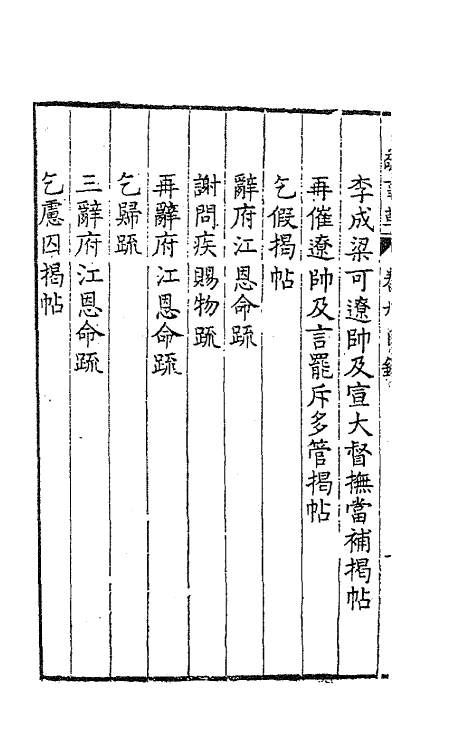 李成梁可遼帥及宣大督撫當補揭帖
再催遼帥及言罷斥多管揭帖
乞假揭帖
辭府江恩命疏
謝問疾賜物疏
再辭府江恩命疏
乞歸疏
三辭府江恩命疏
乞慮囚揭帖